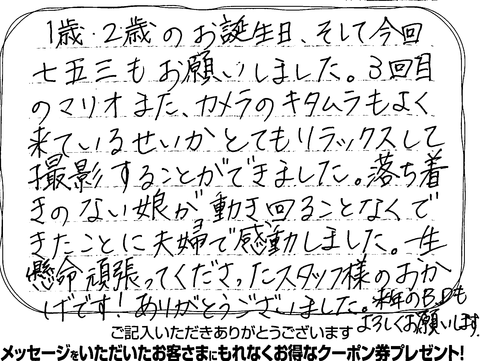 1歳・2歳のお誕生日、そして今回
七五三もお願いしました。3回目
のマリオまた、カメラのキタムラもよく
来ているせいかとてもリラックスして
撮影することができました。落ち着
きのない娘が、動き回ることなくで
きたことに夫婦で感動しました。一生
懸命頑張ってくださったスタッフ様のおか
げです！ありがとうございました。来年のB.Dも
よろしくお願いします。
ご記入いただきありがとうございます
メッセージをいただいたお客さまにもれなくお得なクーポン券プレゼント!